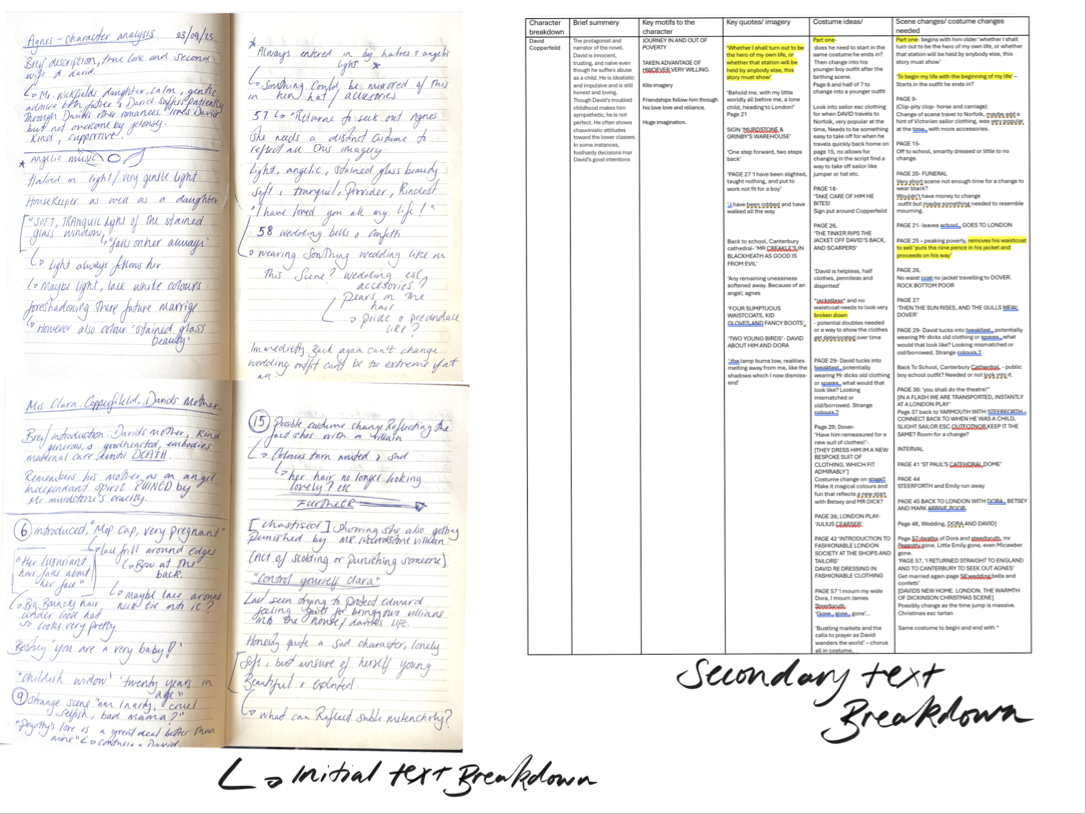 Agnes - character analysis 23/09/25
Brief description, true love and second
wife of david.
↳ Mr. Wickfields daughter, calm, gentle,
admire both father & David suffers patiently
through Davids other romances "loves David"
but not overcome by jelousy.
Kind, supportive.
* Angelic music
Haloed in light/very gentle light
Housekeeper as well as a daughter
"SOFT, TRANQUIL light of the stained
glass window, "falls on her always"
↳ light always follows her
↳ Maybe light, lace white colours
foreshadowing there future marrige
↳ However also colour 'stained glass
beauty'
* Always entered in by halos & angels
light *
↳ Something could be mirrored of this
in her hat / accesories.
57 ↳ "Returns to seek out Agnes
She needs a distinct costume to
reflect all this imagery
light, angelic, stained glass beauty
Soft, tranquil, Provider, Kindest
"I have loved you all my life!"
58 wedding bells & confetti
↳ wearing somthing wedding like in
this scene? wedding esc
accesories?
pears in the
hair
pride & predudice
like?
Immedietly Back again can't change
wedding outfit cant be to extreme if at
all
Mrs Clara Copperfield, Davids Mother
Brief introduction: Davids mother, kind
generous & goodhearted, embodies
maternal care until DEATH.
Remembers his mother as an angel
independant spirit RUINED by
Mr murdstone's cruelty.
⑥ introduced "Mop Cap, very pregnant"
↳ lay frill around edges
↳ Bow at the
back.
"Her luxuriant
hair falls about
her face"
↳ maybe lace around
neck tie into it?
↳ Big Bouncy hair
under look hat
so looks very pretty.
Bestsy you are a very baby!'
"childish widow' 'twenty years in
age"
⑨ Strange scene "am I nasty, cruel
selfish, bad mama?"
"Pegotty's love is a great deal better than
mine"
⑮ Possible costume change Reflecting the
fact shes with a villain
↳ Colours turn muted & sad
↳ her hair no longer looking
lovely? etc
FURTHER
[chastised] showing she also getting
punished by mr murdstone villian
(act of scolding or punishing someone)
"Control yourself clara"
Last seen trying to protect edward
feeling guilt for bringing two villians
into the house/davids life.
Honestly quite a sad character, lonely
Soft, but unsure of herself young
Beautiful & exploited.
↳ what can Reflect subtle melencholy?
↳ Initial text Breakdown
Character
breakdown
David
Copperfield
Brief summery
The protagonist and
narrator of the novel.
David is innocent,
trusting, and naïve even
though he suffers abuse
as a child. He is idealistic
and impulsive and is still
honest and loving.
Though David's troubled
childhood makes him
sympathetic, he is not
perfect. He often shows
chauvinistic attitudes
toward the lower classes.
In some instances,
foolhardy decisions mar
David's good intentions
Key motifs to the
character
JOURNEY IN AND OUT OF
POVERTY
TAKEN ADVANTAGE OF
HOWEVER VERY WILLING.
Kite imagery
Friendships follow him through
his love love and reliance.
Huge imagination.
Key quotes/ imagery
'Whether I shall turn out to be
the hero of my own life, or
whether that station will be
held by anybody else, this
story must show'
'Behold me, with my little
worldly all before me, a lone
child, heading to London!'
Page 21
SIGN 'MURDSTONE &
GRINBY'S WAREHOUSE'
'One step forward, two steps
back'
'PAGE 27 'I have been slighted,
taught nothing, and put to
work not fit for a boy'
'I have been robbed and have
walked all the way
Back to school, Canterbury
cathedral- 'MR CREAKLE'S IN
BLACKHEATH AS GOOD IS
FROM EVIL'
'Any remaining uneasiness
softened away. Because of an
angel; agnes
'FOUR SUMPTUOUS
WAISTCOATS, KID
GLOVES AND FANCY BOOTS',
'TWO YOUNG BIRDS'- DAVID
ABOUT HIM AND DORA
'the lamp burns low, realities
melting away from me, like the
shadows which I now dismiss-
end'
Costume ideas/
Part one-
does he need to start in the
same costume he ends in?
Then change into his
younger boy outfit after the
birthing scene.
Page 6 and half of 7 to
change into a younger outfit
Look into sailor esc clothing
for when DAVID travels to
Norfolk, very popular at the
time, Needs to be something
easy to take off for when he
travels quickly back home on
page 15, no allows for
changing in the script find a
way to take off sailor like
jumper or hat etc.
PAGE 18-
'TAKE CARE OF HIM HE
BITES!
Sign put around Copperfield
PAGE 26,
'THE TINKER RIPS THE
JACKET OFF DAVID'S BACK,
AND SCARPERS'
'David is helpless, half
clothes, penniless and
dispirited'
*jacketless* and no
waistcoat needs to look very
broken down
- potential doubles needed
or a way to show the clothes
get deteriorated over time
PAGE 29- David tucks into
breakfast, potentially
wearing Mr dicks old clothing
or spares, what would that
look like? Looking
mismatched or
old/borrowed. Strange
colours.?
Page 29; Dover-
'Have him remeasured for a
new suit of clothes!'-
[THEY DRESS HIM IM A NEW
BESPOKE SUIT OF
CLOTHING, WHICH FIT
ADMIRABLY]
Costume change on stage?
Make it magical colours and
fun that reflects a new start
with Betsey and MR DICK?
PAGE 36; LONDON PLAY-
'JULIUS CEARSER'
PAGE 42 'INTRODUCTION TO
FASHIONABLE LONDON
SOCIETY AT THE SHOPS AND
TAILORS'
DAVID RE DRESSING IN
FASHIONABLE CLOTHING
PAGE 57 'I mourn my wide
Dora, I mourn James
Steerforth
'Gone,, gone, gone'...
'Bustling markets and the
calls to prayer as David
wanders the world' – chorus
all in costume
Scene changes/ costume changes
needed
Part one- begins with him older 'whether I shall
turn out to be the hero of my own life, or whether
that station will be held by anybody else, this
story must show' –
Starts in the outfit he ends in?
'To begin my life with the beginning of my life' –
PAGE 9-
(Clip-pity clop- horse and carriage)
Change of scene travel to Norfolk, maybe add a
hint of Victorian sailor clothing, was very popular
at the time, with more accessories.
PAGE 15-
Off to school, smartly dressed or little to no
change.
PAGE 20- FUNERAL
Very short scene not enough time for a change to
wear black?
Wouldn't have money to change
outfit but maybe something needed to resemble
mourning.
PAGE 21- leaves school, GOES TO LONDON
PAGE 25 – peaking poverty, removes his waistcoat
to sell 'puts the nine pence in his jacket and
proceeds on his way'
PAGE 26,
No waist coat no jacket travelling to DOVER.
ROCK BOTTOM POOR
PAGE 27
'THEN THE SUN RISES, AND THE GULLS MEW,
DOVER'
PAGE 29- David tucks into breakfast, potentially
wearing Mr dicks old clothing or spares, what
would that look like? Looking mismatched or
old/borrowed. Strange colours.?
Back To School, Canterbury Cathedral, - public
boy school outfit? Needed or not look into it.
PAGE 36; 'you shall do the theatre!'
[IN A FLASH WE ARE TRANSPORTED, INSTANTLY
AT A LONDON PLAY]
Page 37 back to YARMOUTH WITH STEERFORTH –
CONNECT BACK TO WHEN HE WAS A CHILD,
SLIGHT SAILOR ESC OUTFIT OR KEEP IT THE
SAME? Room for a change?
INTERVAL
PAGE 41 'ST PAUL'S CATEHORAL DOME'
PAGE 44
STEERFORTH and Emily run away
PAGE 45 BACK TO LONDON WITH DORA, BETSEY
AND MARK ARRIVE POOR.
Page 48, Wedding, DORA AND DAVID]
Page 57; deaths of Dora and steerforth, mr
Peggotty gone. Little Emily gone, even Micawber
gone.
'PAGE 57, 'I RETURNED STRAIGHT TO ENGLAND
AND TO CANTERBURY TO SEEK OUT AGNES'
Get married again page 58'wedding bells and
confetti'
[DAVIDS NEW HOME. LONDON. THE WARMTH
OF DICKINSON CHRISTMAS SCENE]
Possibly change as the time jump is massive.
Christmas esc tartan
Same costume to begin and end with *
Secondary text
Breakdown